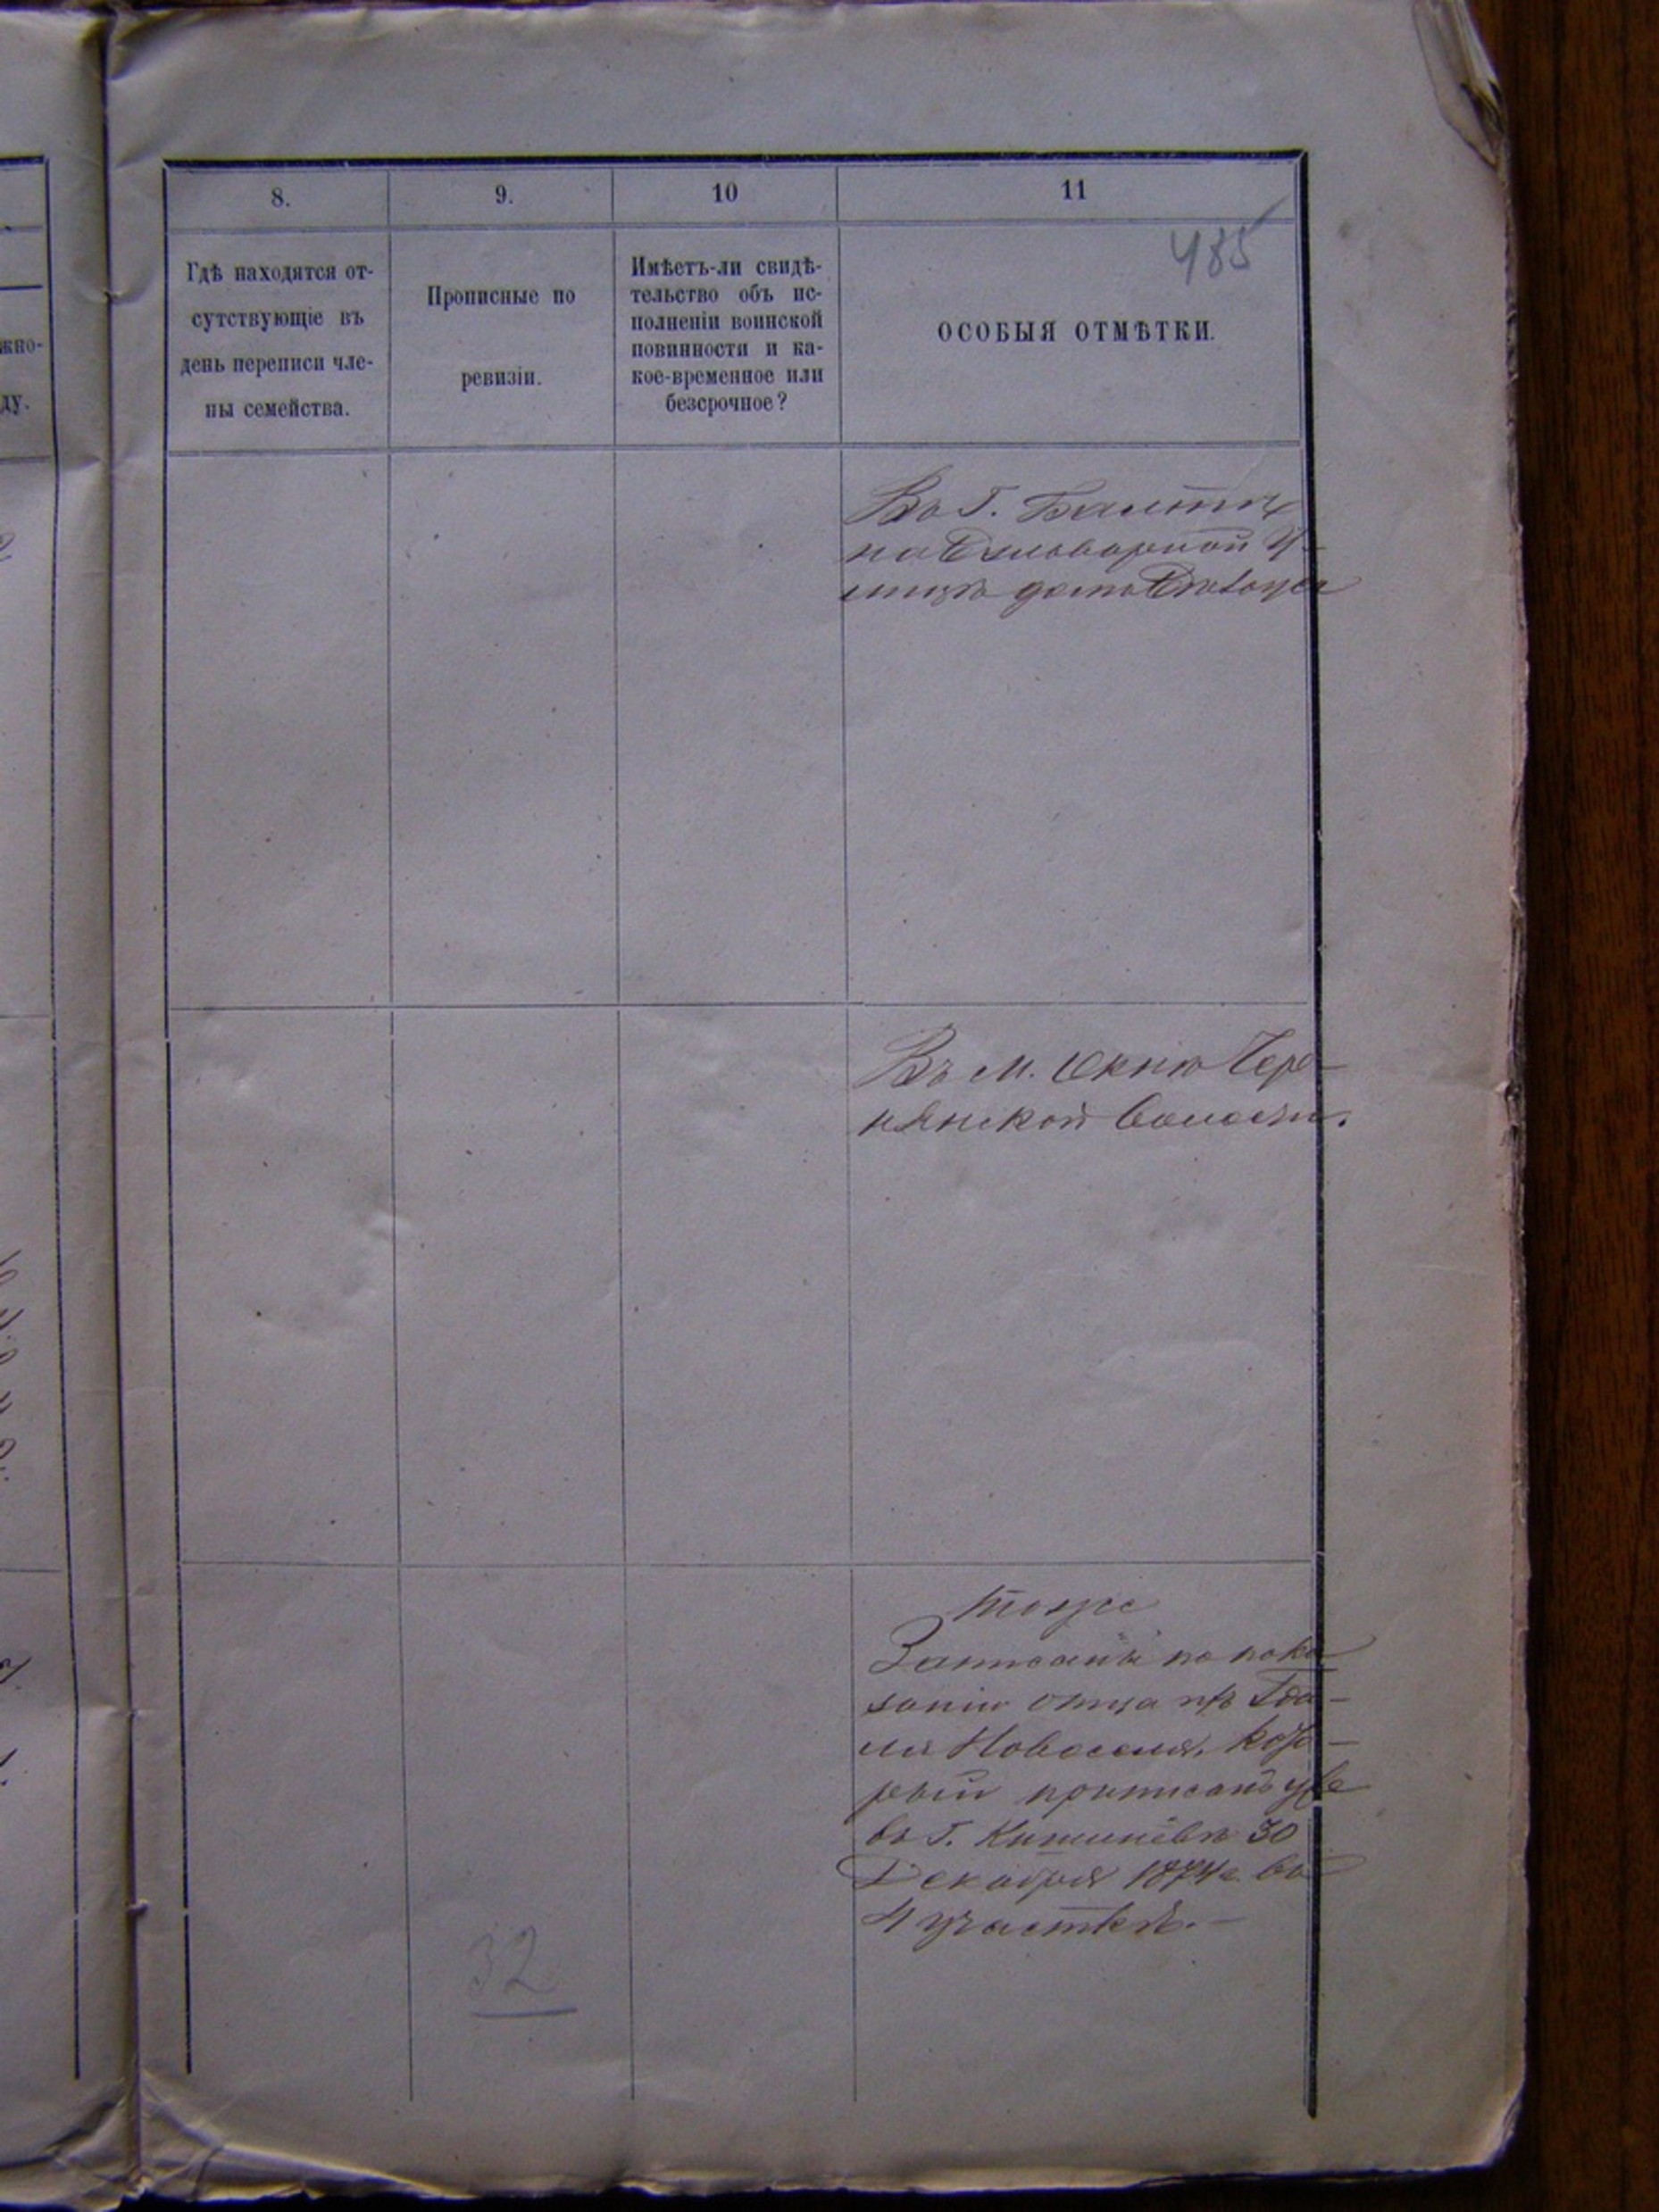 8.
9.
10
11
485
Гдѣ находятся от-
сутствующіе въ
день переписи чле-
ны семейства.
Прописные по
ревизіи.
Имѣетъ-ли свидѣ-
тельство объ ис-
полненіи воинской
повинности и ка-
кое-временное или
безсрочное?
ОСОБЫЯ ОТМѢТКИ.
жно-
ду.
Въ Г. Балтѣ
на У-
лицѣ домъ
Въ М. Окнѣ Чере-
нянской волости.
тоже
Записаны по пока
занію отца
Новоселя, кото-
рый приписанъ уже
въ Г. Кишиневѣ 30
Декабря 1874 г. во
4 участкѣ.-
32